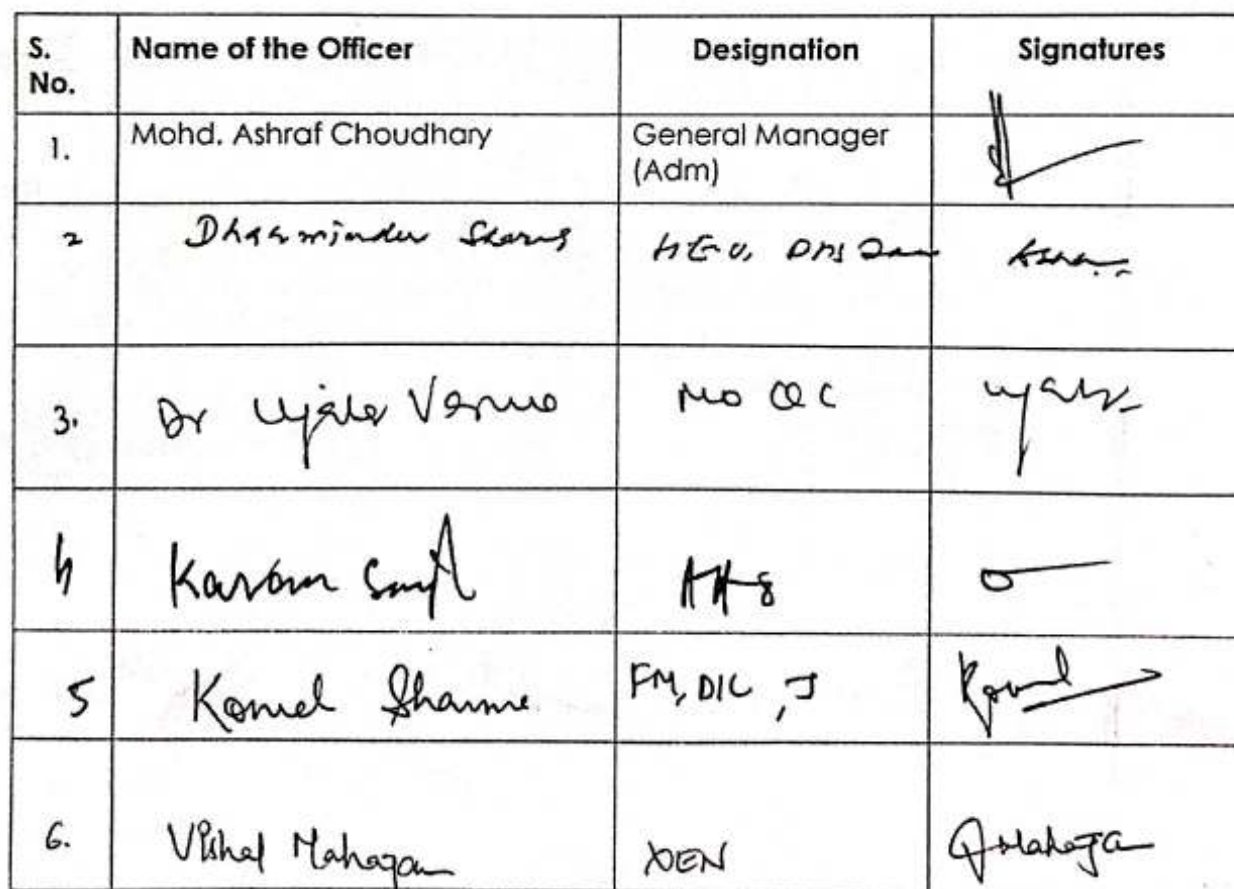 S. No. Name of the Officer Designation Signatures
1. Mohd. Ashraf Choudhary General Manager (Adm)
2 Dharminder Sharma
3. Dr Ujala Verma MO QC
4 Karan Singh
5 Komal Sharma FM, DIC, J Komal
6. Vishal Mahajan XEN Mahajan